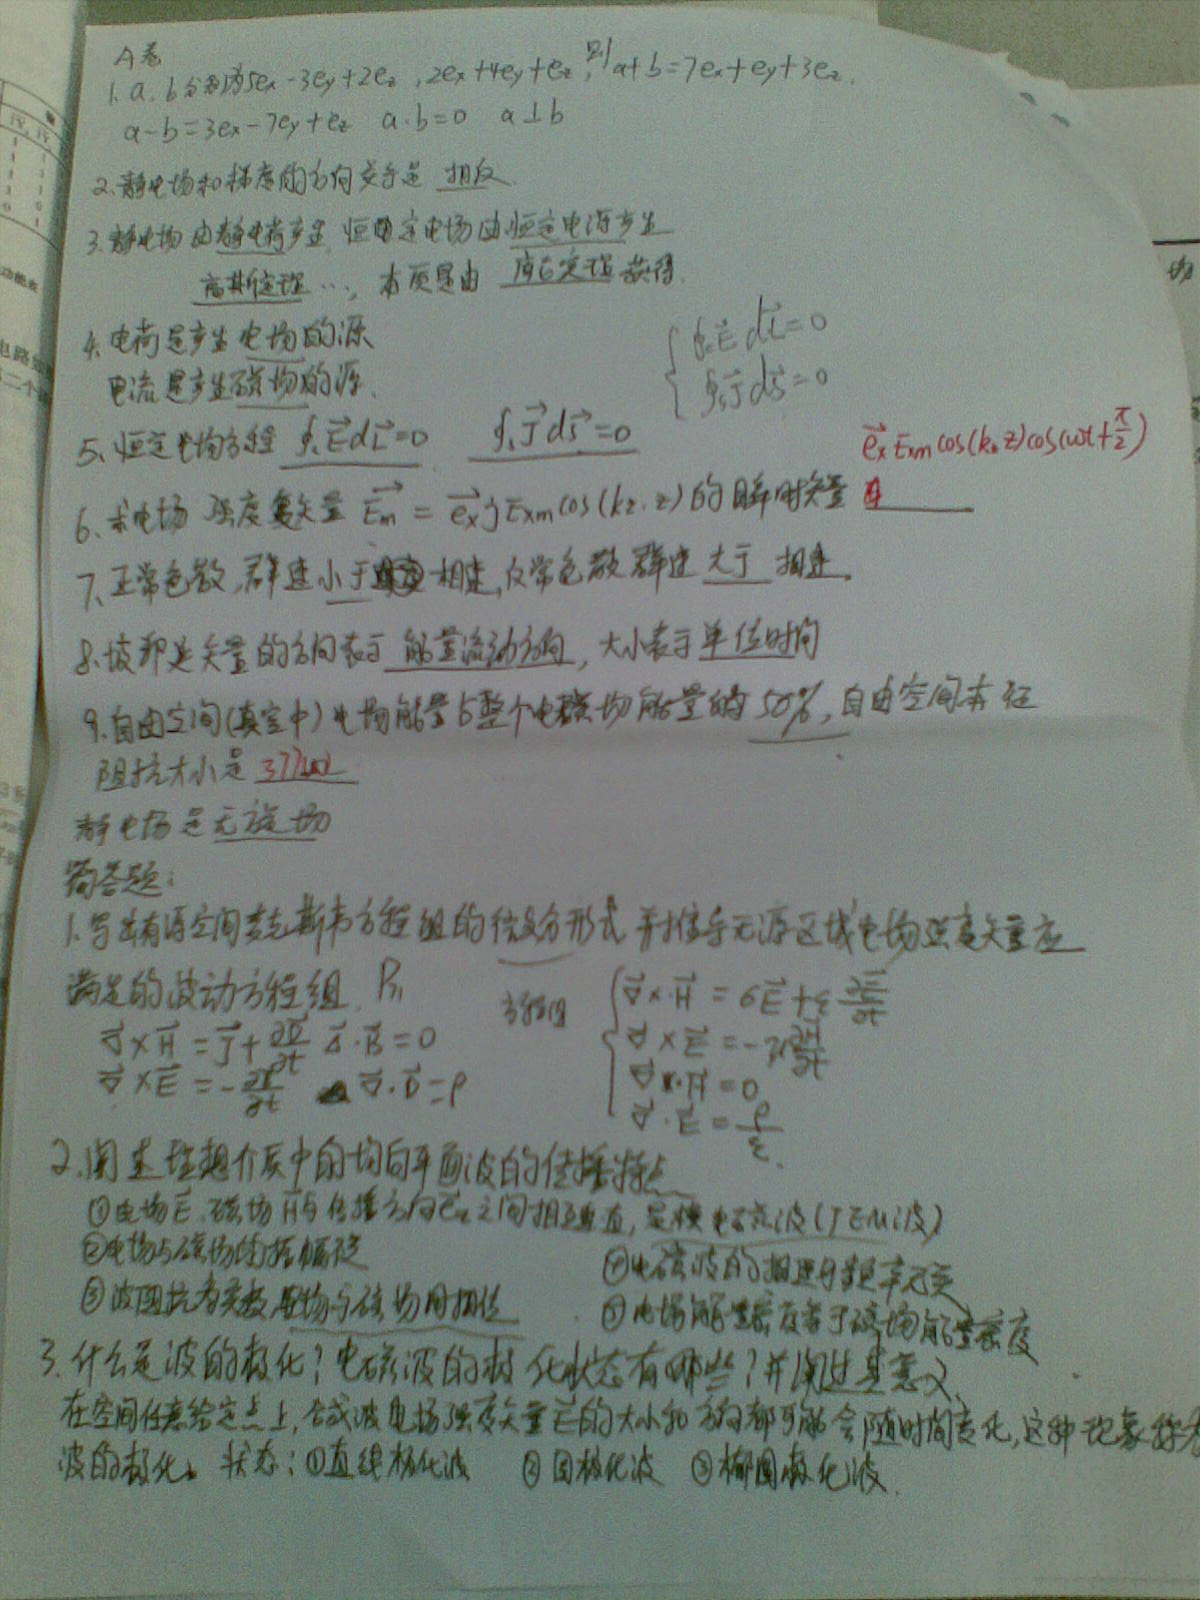 A卷
1. a. b分别为5ex-3ey+2ez, 2ex+4ey+ez, 则a+b=7ex+ey+3ez.
a-b=3ex-7ey+ez a·b=0 a⊥b
2、静电场和梯度的方向关于是 相反.
3、静电场由静电荷产生, 恒定电场由恒定电源产生
高斯定理…, 本质是由 库仑定理获得.
4、电荷是产生电场的源
电流是产生磁场的源.
∮E⃗dl⃗=0
∮J⃗ds⃗=0
5、恒定电场方程 ∮E⃗dl⃗=0 ∮J⃗ds⃗=0
e⃗x Exm cos(k0z)cos(ωt+π/2)
6、求电场强度复矢量 E⃗m = e⃗x j Exm cos(kz·z)的瞬时矢量
7、正常色散,群速小于 相速,反常色散群速大于 相速.
8、坡印廷矢量的方向表示 能量流动方向, 大小表示单位时间
9、自由空间(真空中)电场能量占整个电磁场能量的50%,自由空间本征
阻抗大小是 377
静电场是无旋场
简答题:
1. 写出有源空间麦克斯韦方程组的微分形式 并推导无源区域电场强度矢量应
满足的波动方程组. P71
方程组
∇⃗×H⃗=J⃗+∂D⃗/∂t ∇⃗·B⃗=0
∇⃗×E⃗=-∂B⃗/∂t ∇⃗·D⃗=ρ
∇⃗×H⃗=σE⃗+ε∂E⃗/∂t
∇⃗×E⃗=-μ∂H⃗/∂t
∇⃗·H⃗=0
∇⃗·E⃗=ρ/ε
2. 阐述理想介质中的均向平面波的传播特点
①电场E⃗、磁场H⃗与传播方向e⃗z之间相互垂直,是横电磁波(TEM波)
②电场与磁场的振幅
③波阻抗为实数,电场与磁场同相位
④电磁波的相速与频率无关
⑤电场能量密度等于磁场能量密度
3. 什么是波的极化?电磁波的极化状态有哪些?并阐述其意义.
在空间任意给定点上,合成波电场强度矢量E⃗的大小和方向都可能会随时间变化,这种现象称为
波的极化。状态:①直线极化波 ②圆极化波 ③椭圆极化波.